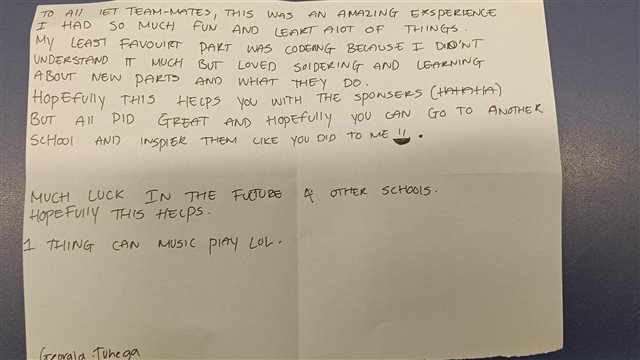 TO All IET TEAM-MATES, THIS WAS AN AMAZING EXSPERIENCE
I HAD SO MUCH FUN AND LEART AlOT OF THINGS.
MY LEAST FAVOUIRT PART WAS CODEING BECAUSE I DIDN'T
UNDERSTAND IT MUCH BUT LOVED SOLDERING AND LEARNING
ABOUT NEW PARTS AND WHAT THEY DO.
HOPEFUlly THIS HElPS YOU WITH THE SPONSERS (HAHAHA)
BUT All DID GREAT AND HOPEFUlly YOU CAN GO TO ANOTHER
SCHOOL AND INSPIER THEM LIKE YOU DID TO ME .
MUCH LUCK IN THE FUTURE & OTHER SCHOOLS.
HOPEFUlly THIS HELPS.
1 THING CAN MUSIC PlAY LOL.
Georgia